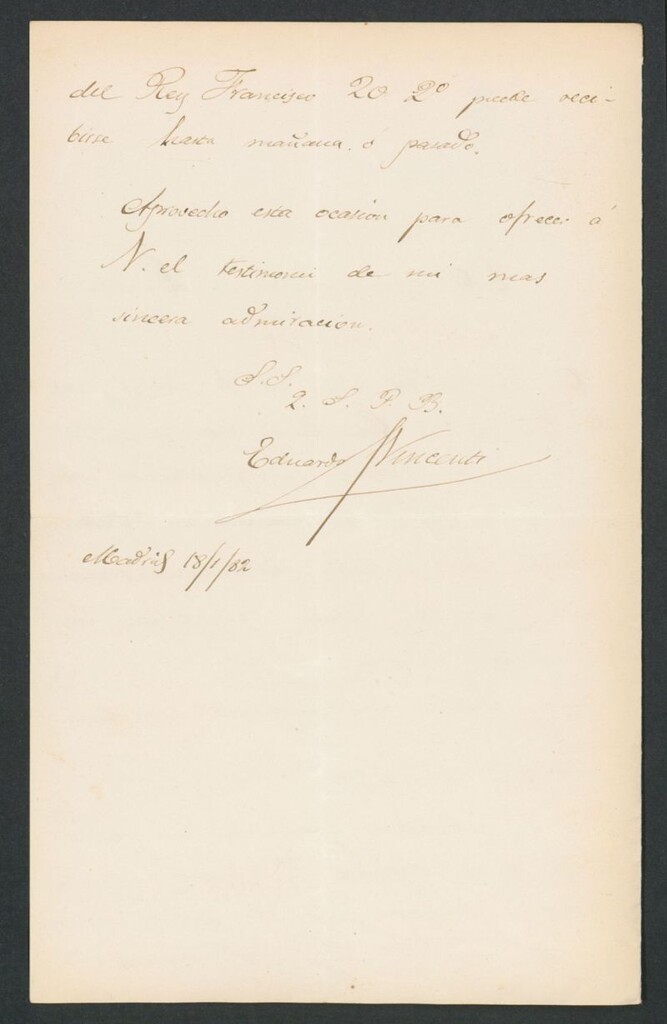 del Rey Francisco 20 2º puede reci-
birse hasta mañana ó pasado.
Aprovecho esta ocasión para ofrecer á
V. el testimoni de mi mas
sincera admiracion.
S.S.
Q. S. P. B.
Eduardo Vincenti
Madrid 18/1/82